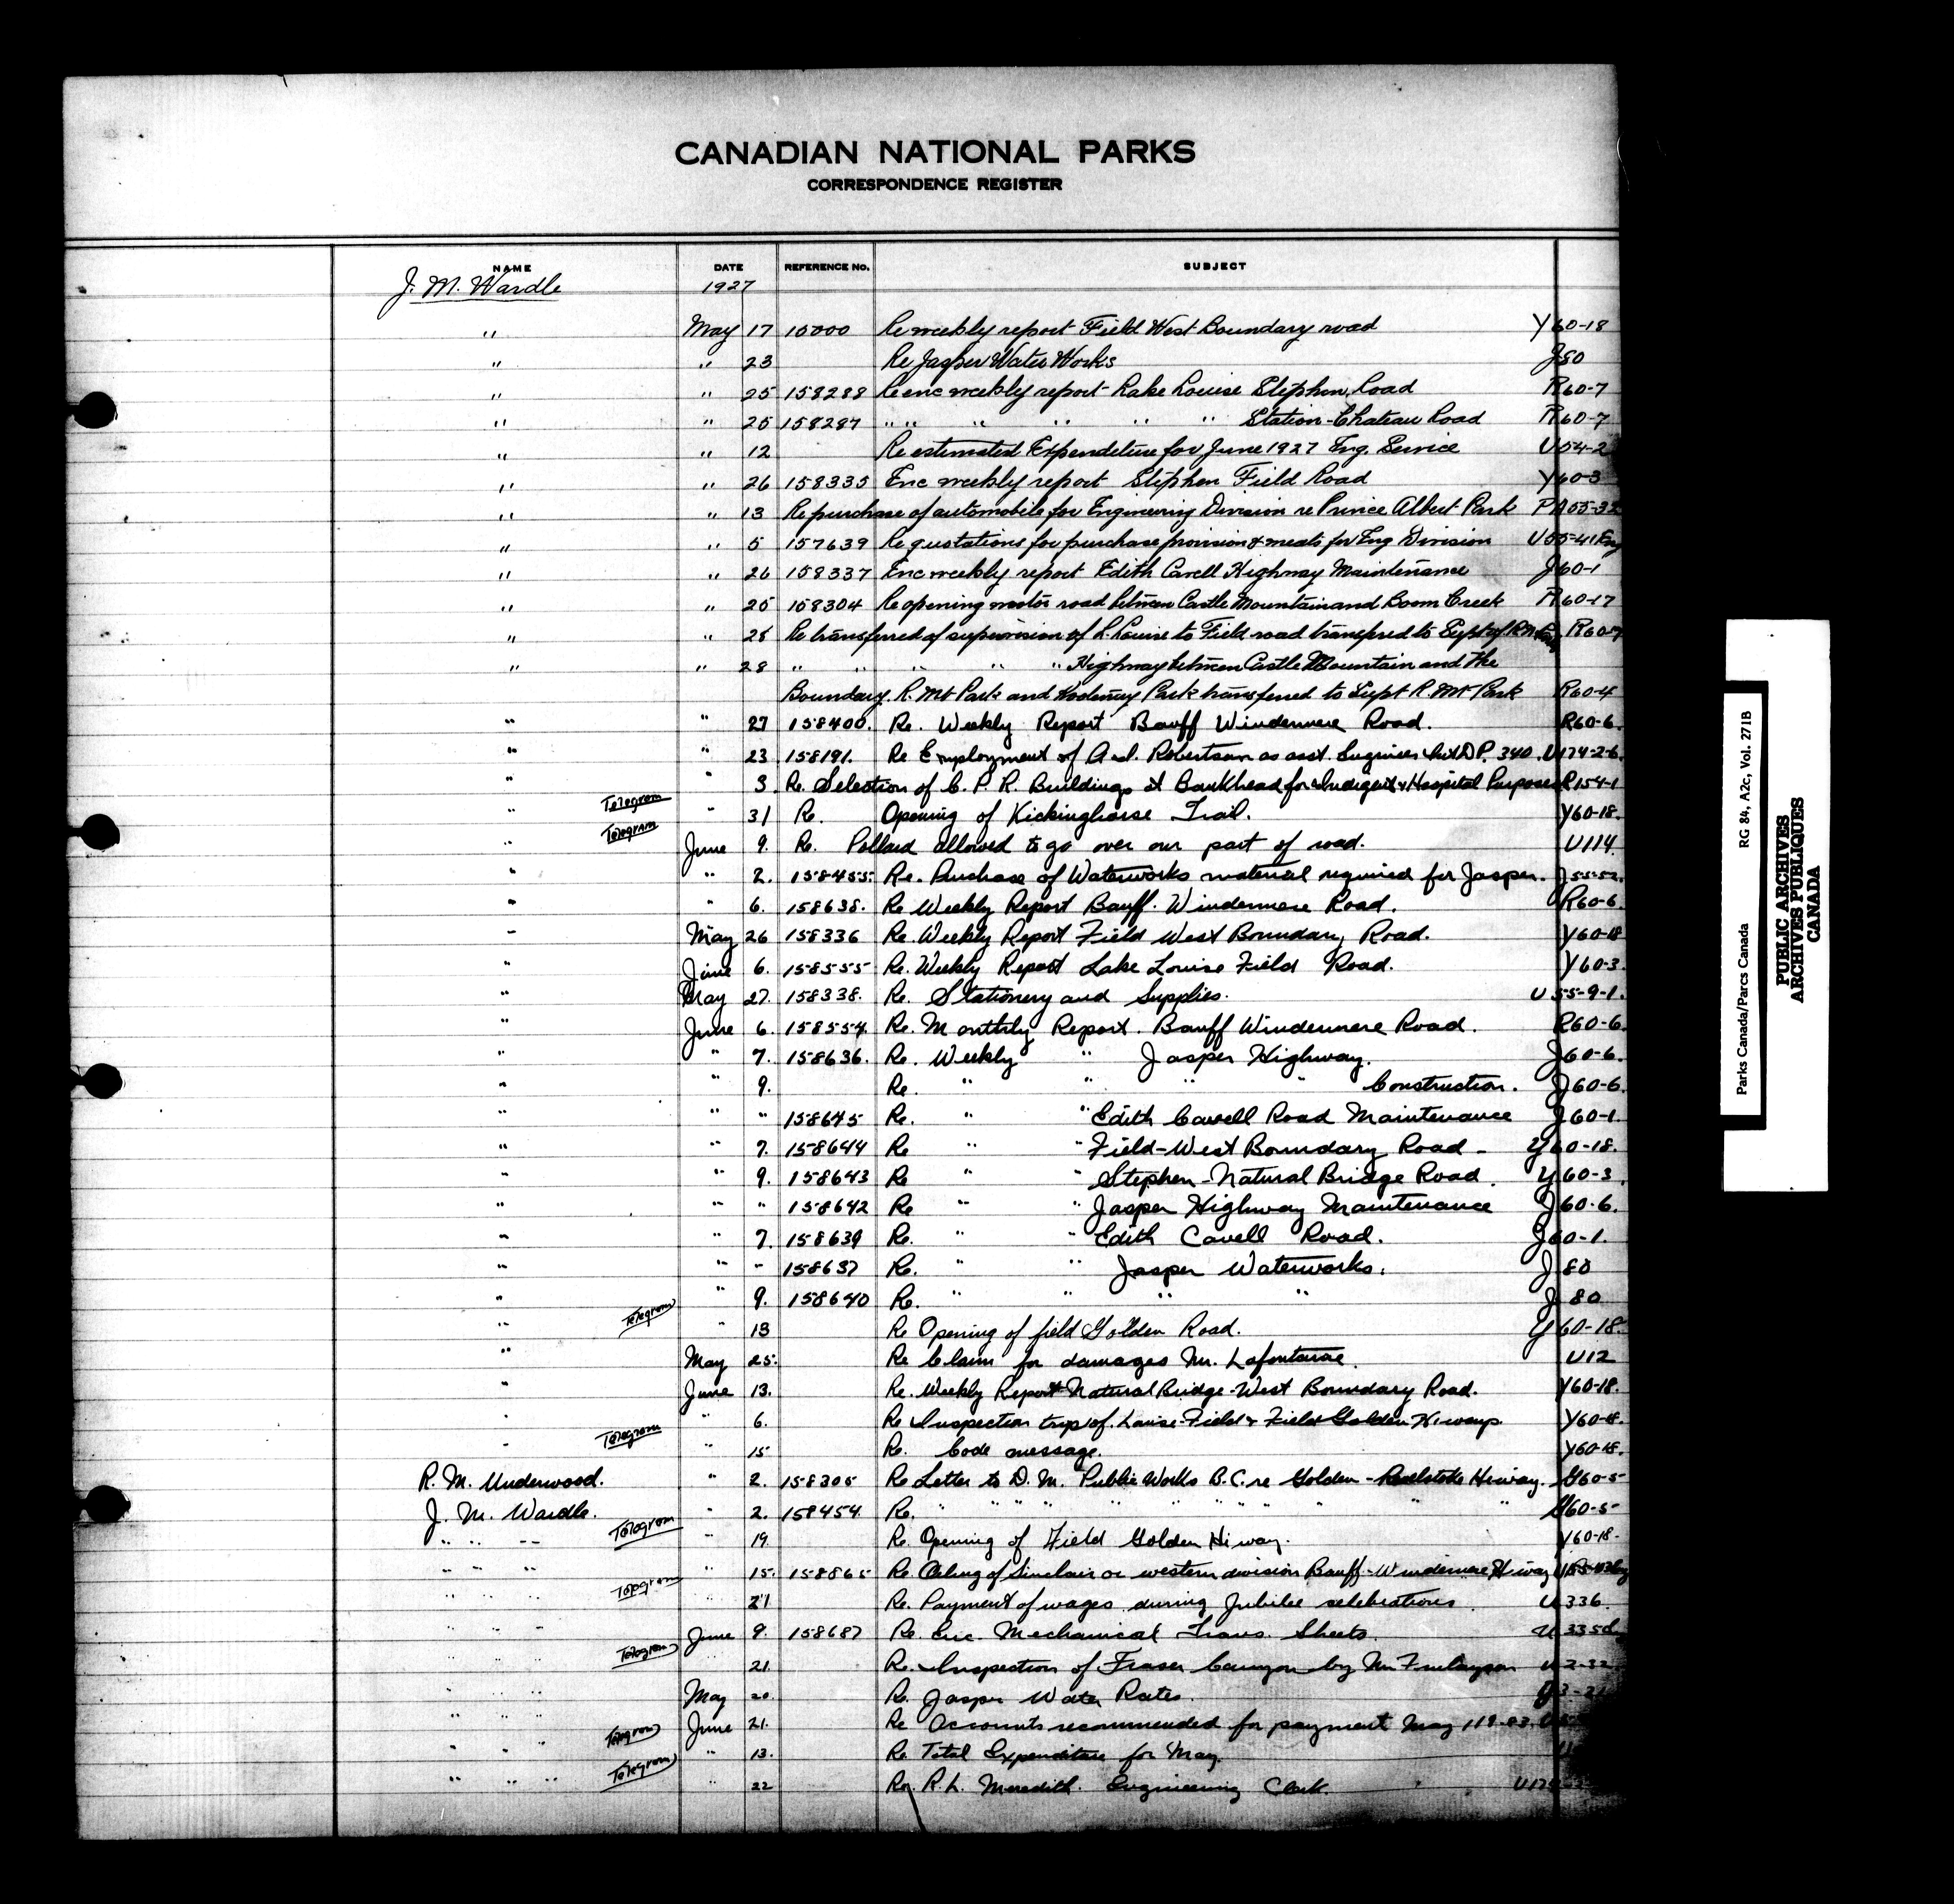 CANADIAN NATIONAL PARKS
CORRESPONDENCE REGISTER
NAME DATE REFERENCE No. SUBJECT
J. M. Wardle 1927
" May 17 10000 Re weekly report Field West Boundary road Y60-18
" " 23 Re Jasper Water Works J80
" " 25 158288 Re enc weekly report Lake Louise Stephen Road R60-7
" " 25 158287 " " " " " " Station-Chateau Road R60-7
" " 12 Re estimated Expenditure for June 1927 Eng. Service U54-2
" " 26 158335 Enc weekly report Stephen Field Road Y60-3
" " 13 Re purchase of automobile for Engineering Division re Prince Albert Park PA55-32
" " 5 157639 Re quotations for purchase provision & meats for Eng Division U55-41 Eng
" " 26 158337 Enc weekly report Edith Cavell Highway Maintenance J60-1
" " 25 158304 Re opening motor road between Castle Mountain and Boom Creek R60-17
" " 28 Re transferred of supervision of L. Louise to Field road transfered to Supt of R.M. R60-7
" " 28 " " " " " Highway between Castle Mountain and the
Boundary. R. Mt Park and Kootenay Park transferred to Supt R. Mt Park R60-4
" " 27 158400. Re. Weekly Report Banff Windermere Road. R60-6.
" " 23 158191. Re Employment of A.d. Robertson as asst. Engineer D.P. 340. U174-2-6.
" " 3. Re. Selection of C. P. R. Buildings at Bankhead for Indigent & Hospital Purposes R154-1
" Telegram " 31 Re. Opening of Kickinghorse Trail. Y60-18.
" Telegram June 9. Re. Pollard allowed to go over our part of road. U114.
" " 2. 158455. Re. Purchase of Waterworks material required for Jasper. J55-52.
" " 6. 158638. Re Weekly Report Banff. Windermere Road. R60-6.
" May 26 158336 Re. Weekly Report Field West Boundary Road. Y60-18
" June 6. 158555 Re. Weekly Report Lake Louise Field Road. Y60-3.
" May 27. 158338. Re. Stationery and Supplies. U55-9-1.
" June 6. 158554. Re. Monthly Report. Banff Windermere Road. R60-6.
" " 7. 158636. Re. Weekly " Jasper Highway. J60-6.
" " 9. Re. " " " " Construction. J60-6.
" " " 158645 Re. " " Edith Cavell Road Maintenance J60-1.
" " 7. 158644 Re " " Field-West Boundary Road - Y60-18.
" " 9. 158643 Re " " Stephen-Natural Bridge Road. Y60-3.
" " " 158642 Re " " Jasper Highway Maintenance J60-6.
" " 7. 158639 Re. " " Edith Cavell Road. J60-1.
" " " 158637 Re. " " Jasper Waterworks. J80
" " 9. 158640 Re. " " " " J80
" Telegram " 13 Re Opening of field Golden Road. Y60-18.
" May 25. Re Claim for damages Mr. Lafontaine. U12
" June 13. Re. Weekly Report Natural Bridge-West Boundary Road. Y60-18.
" " 6. Re Inspection trip of. Louise-Field & Field Golden Hiways Y60-18.
" Telegram " 15 Re. Code message. Y60-18.
R. M. Underwood. " 2. 158305 Re Letter to D. M. Public Works B.C. re Golden - Revelstoke Hiway. G60-5
J. M. Wardle. " 2. 158454. Re. " " " " " " " " " " " G60-5
" " " Telegram " 19. Re. Opening of Field Golden Hiway. Y60-18.
" " " " 15. 158865 Re. Oiling of Sinclair or western division Banff-Windermere Hiway
" " " Telegram " 21 Re. Payment of wages during Jubilee celebrations. U336.
" " " June 9. 158687 Re. Enc. Mechanical Trans. Sheets. U335
" " " Telegram 21. Re. Inspection of Fraser Canyon by Mr Finlayson U2-32
" " " May 20. Re. Jasper Water Rates.
" " " June 21. Re Accounts recommended for payment May 119.83.
" " " Telegram " 13. Re. Total Expenditure for May.
" " " Telegram " 22 Re. R. L. Meredith. Engineering Clerk.
Parks Canada/Parcs Canada RG 84, A2c, Vol. 271B
PUBLIC ARCHIVES
ARCHIVES PUBLIQUES
CANADA